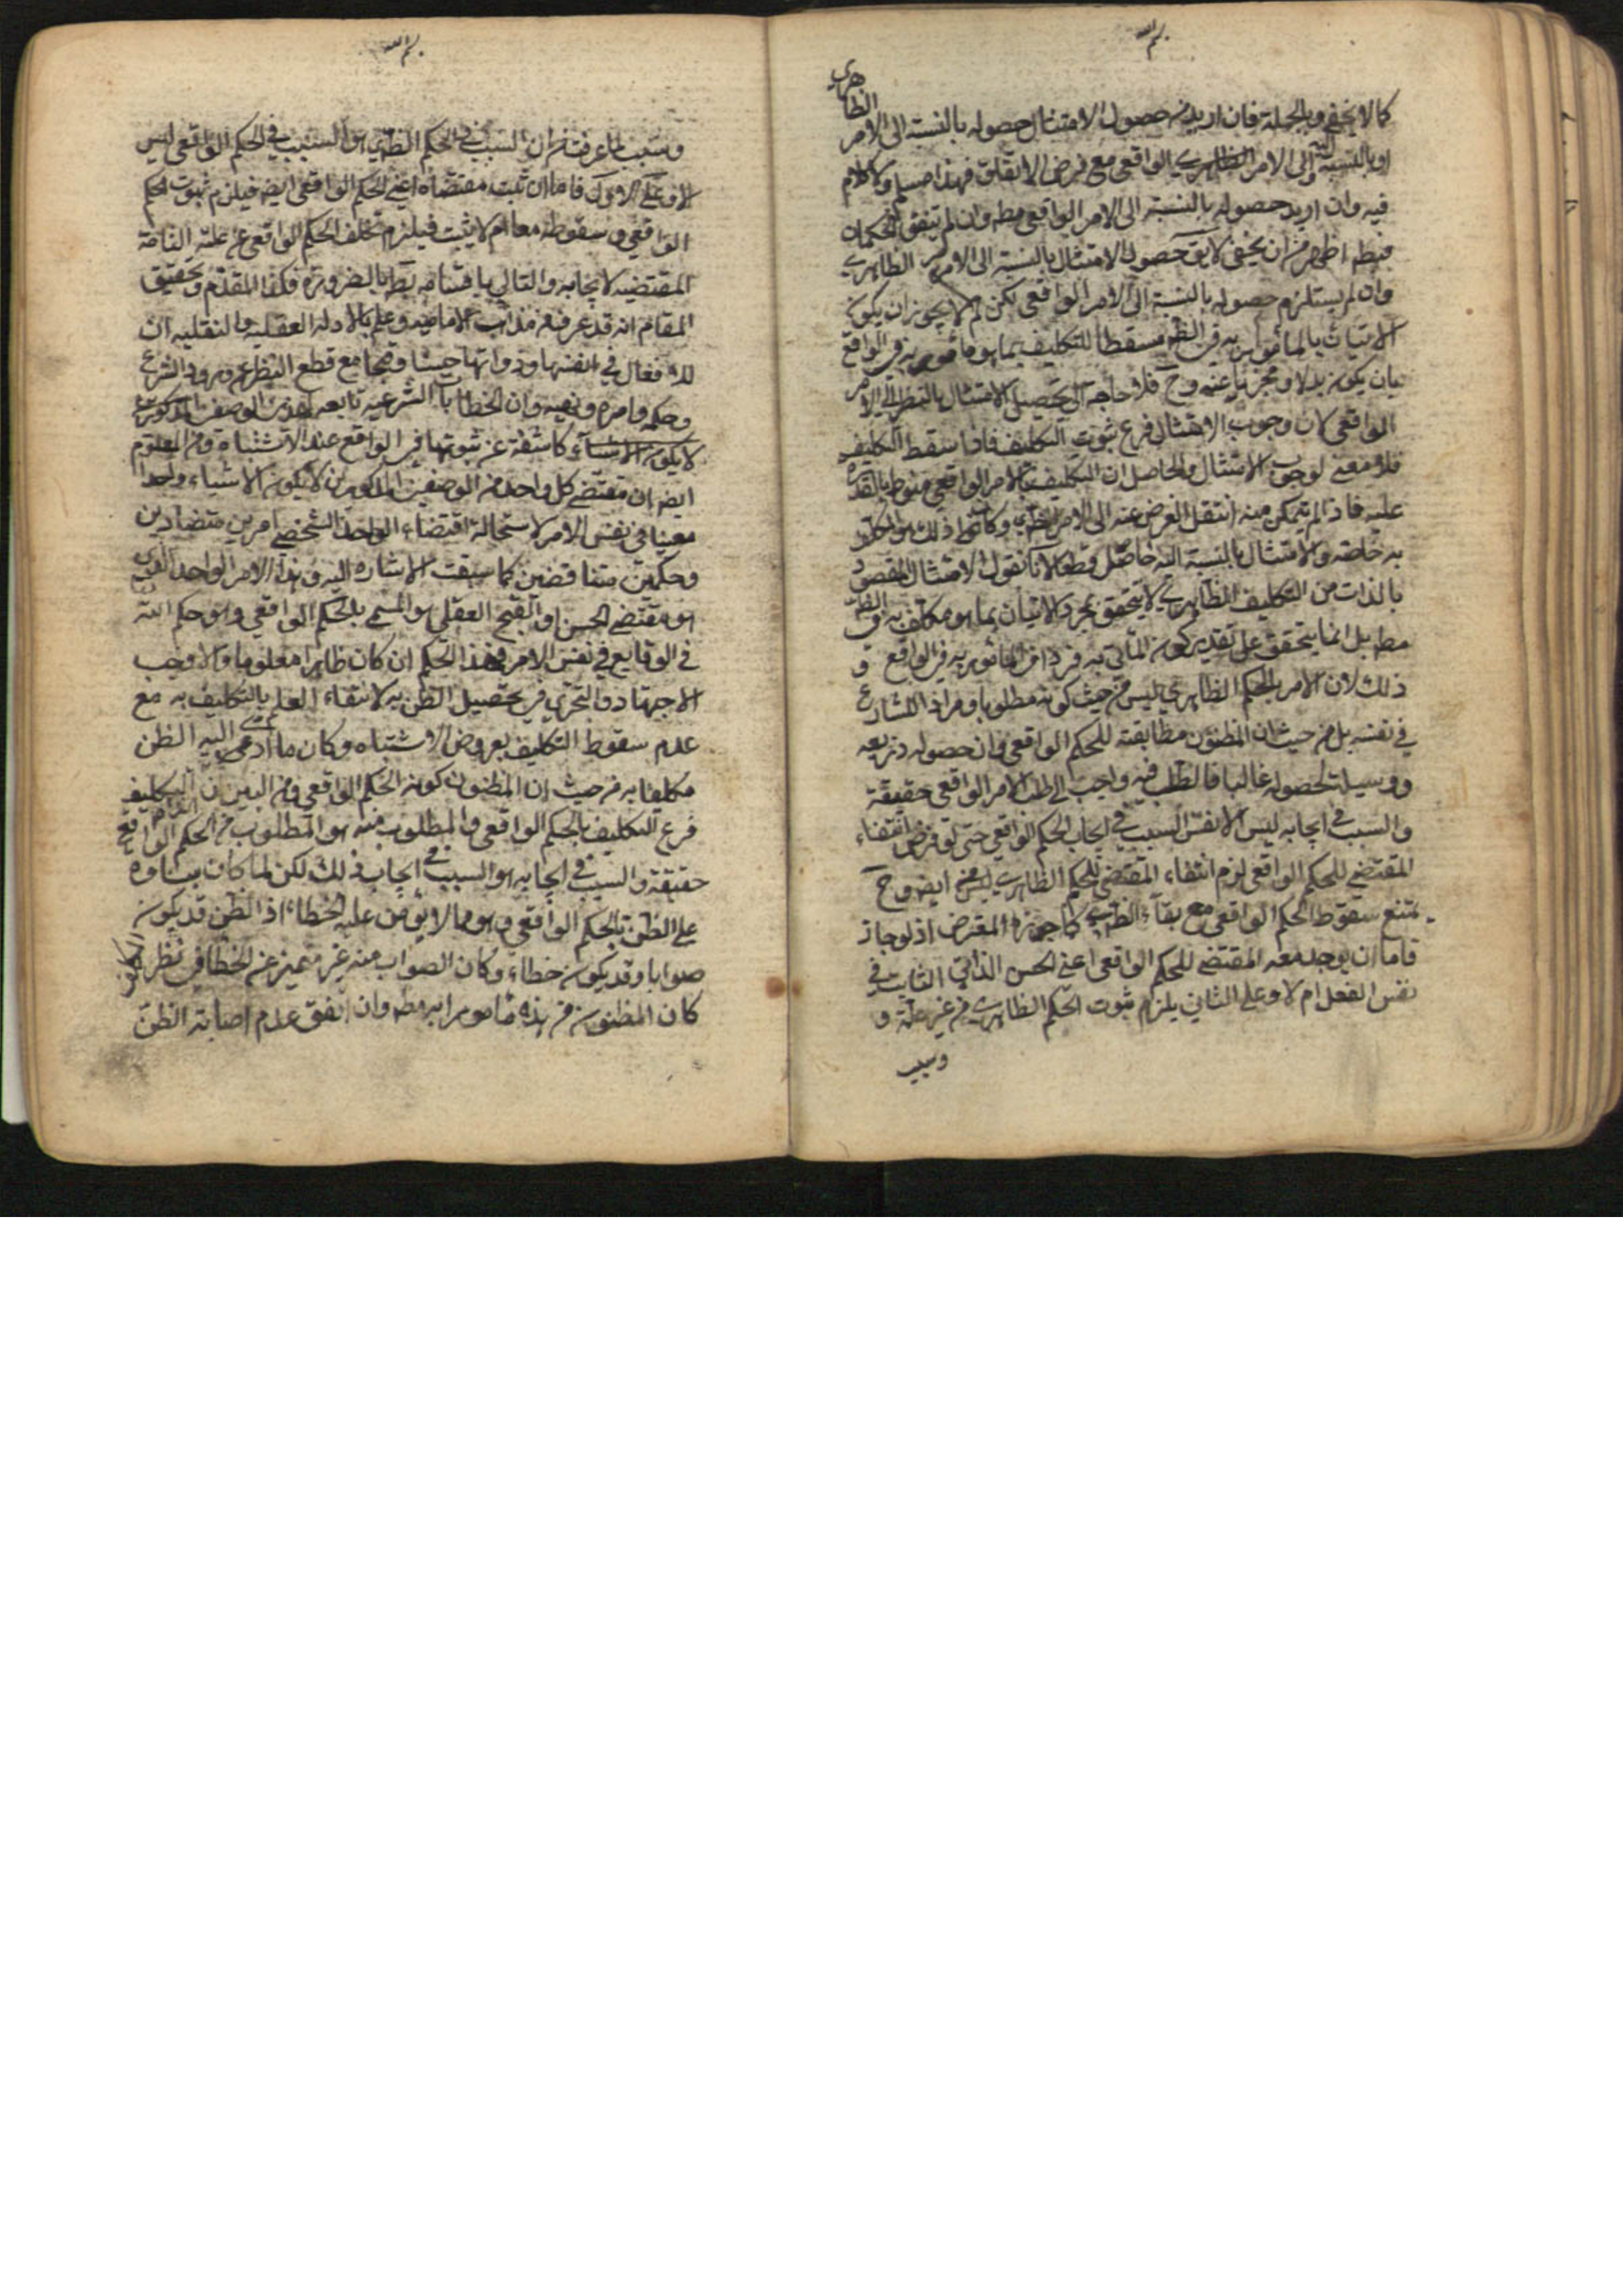 بسم الله
كما لا يخفى وبالجملة فان اريد من حصول الامتثال حصوله بالنسبة الى الامر الظاهري
او بالنسبة الى الامر الواقعي مع فرض الاتفاق فهذا مسلم ولا كلام
فيه وان اريد حصوله بالنسبة الى الامر الواقعي مطه وان لم يتفق الحكمان
فبطه اظهر من ان يخفى لا يق حصول الامتثال بالنسبة الى الامر الظاهري
وان لم يستلزم حصوله بالنسبة الى الامر الواقعي لكن لم لا يجوز ان يكون
الاتيان بالمأمور به في الظه مسقطا للتكليف بما هو مامور به في الواقع
بان يكون بدلا ومجزيا عنه وح فلا حاجة الى تحصيل الامتثال بالنظر الى الامر
الواقعي لان وجوب الامتثال فرع ثبوت التكليف فاذا سقط التكليف
فلا معنى لوجوب الامتثال والحاصل ان التكليف بالامر الواقعي منوط بالقدرة
عليه فاذا لم يتمكن منه انتقل الفرض عنه الى الامر وكان ذلك هو المكلف
به خاصة والامتثال بالنسبة اليه حاصل قطعا لانا نقول الامتثال المقصود
بالذات من التكليف الظاهري لا يتحقق بمجرد الاتيان بما هو مكلف به في الظه
مطه بل انما يتحقق على تقدير كون المأتي به فردا من المأمور به في الواقع و
ذلك لان الامر بالحكم الظاهري ليس من حيث كونه مطلوبا ومرادا للشارع
في نفسه بل من حيث ان المظنون مطابقته للحكم الواقعي وان حصوله ذريعة
ووسيلة لحصوله غالبا فالطلب فيه راجع الى طلب الامر الواقعي حقيقة
والسبب في ايجابه ليس الا نفس السبب في ايجاب الحكم الواقعي حتى لو فرض انتفاء
المقتضي للحكم الواقعي لزم انتفاء المقتضي للحكم الظاهري ايضه وح
يمتنع سقوط الحكم الواقعي مع بقاء الظاهري كما جوزه المعترض اذ لو جاز
فاما ان يوجد معه المقتضي للحكم الواقعي اعني الحسن الذاتي الثابت في
نفس الفعل ام لا وعلى الثاني يلزم ثبوت الحكم الظاهري من غير علة و
وسبب
بسم الله
وسبب لما عرفت من ان السبب في الحكم الظاهري هو السبب في الحكم الواقعي ليس
الا وعلى الاول فاما ان ثبت مقتضاه اعني الحكم الواقعي ايضه فيلزم ثبوت الحكم
الواقعي وسقوطه معا ام لا يثبت فيلزم تخلف الحكم الواقعي عن علته التامة
المقتضية لايجابه والتالي باقسامه بط بالضرورة فكذا المقدم وتحقيق
المقام انه قد عرف من مذاهب الامامية وعلم بالادلة العقلية والنقلية ان
للافعال في انفسها وذواتها حسنا وقبحا مع قطع النظر عن ورود الشرع
وحكمه وامره ونهيه وان الخطابات الشرعية تابعة لهذين الوصفين المذكورين
كاشفة عن ثبوتها في الواقع عند الاشتباه ومن المعلوم
ايضه ان مقتضى كل واحد من الوصفين المذكورين لا يكون الا شيئا واحدا
معينا في نفس الامر لاستحالة اقتضاء الواحد الشخصي امرين متضادين
وحكمين متناقضين كما سبقت الاشارة اليه وهذا الامر الواحد الذي
هو مقتضى الحسن او القبح العقلي هو المسمى بالحكم الواقعي وهو حكم الله
في الوقايع في نفس الامر وهذا الحكم ان كان ظاهرا معلوما والا وجب
الاجتهاد والتحري في تحصيل الظن به لانتفاء العلم بالتكليف به مع
عدم سقوط التكليف بعروض الاشتباه وكان ما ادى اليه الظن
مكلفا به من حيث ان المظنون كونه الحكم الواقعي ومن البين ان التكليف
فرع التكليف بالحكم الواقعي والمطلوب منه هو المطلوب من الحكم الواقعي
حقيقة والسبب في ايجابه هو السبب في ايجاب ذلك لكن لما كان بناؤه
على الظن بالحكم الواقعي وهو مما لا يؤمن عليه الخطاء اذ الظن قد يكون
صوابا وقد يكون خطاء وكان الصواب منه غير متميز عن الخطا في نظر
كان المظنون من هذه مامورا به مطه وان اتفق عدم اصابة الظن